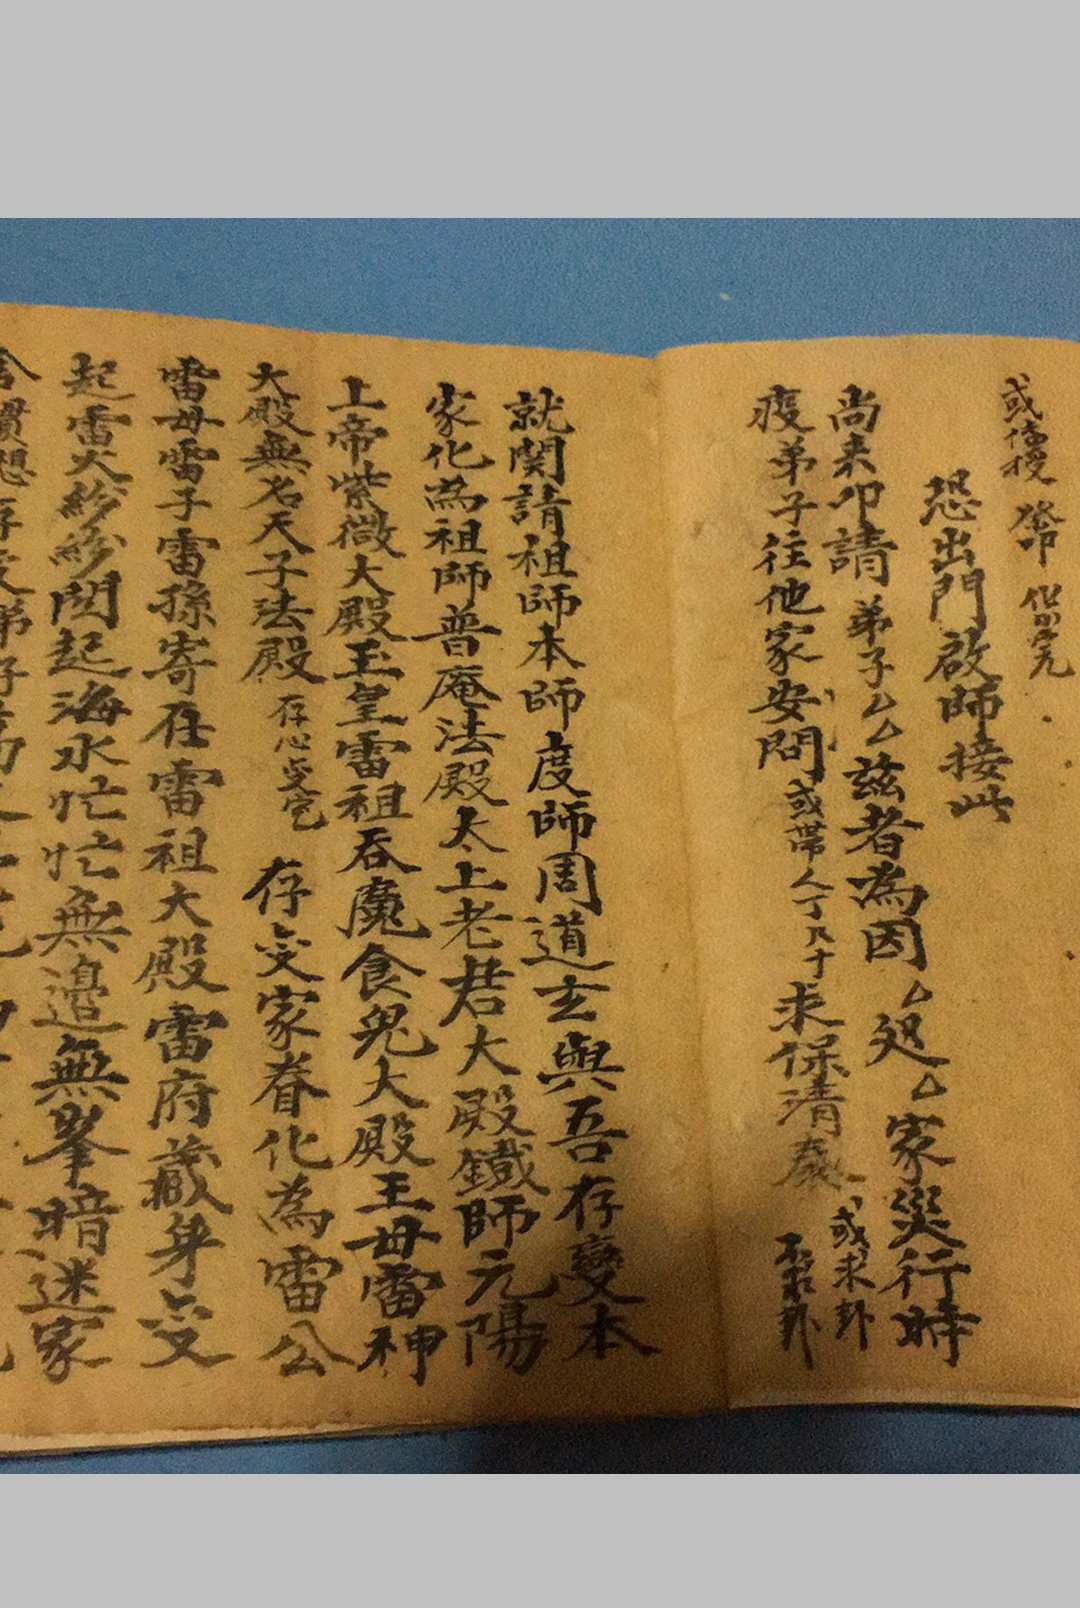 或 保完
恐出門啟師接此
尚來叩請弟子厶厶茲者為因厶処厶家災行時
疫弟子往他家安問或帶人丁乃十求保清 或求卦
就関請祖師本師度師周道玄與吾存變本
家化為祖師普庵法殿太上老君大殿鐵師元陽
上帝紫微大殿玉皇雷祖吞魔食鬼大殿王母雷神
大殿無名天子法殿 存心変完 存変家眷化為雷公
雷母雷子雷孫寄在雷祖大殿雷府藏身変
起雷火紗紗関起海水忙忙無邊無峯暗迷家
想存変弟子